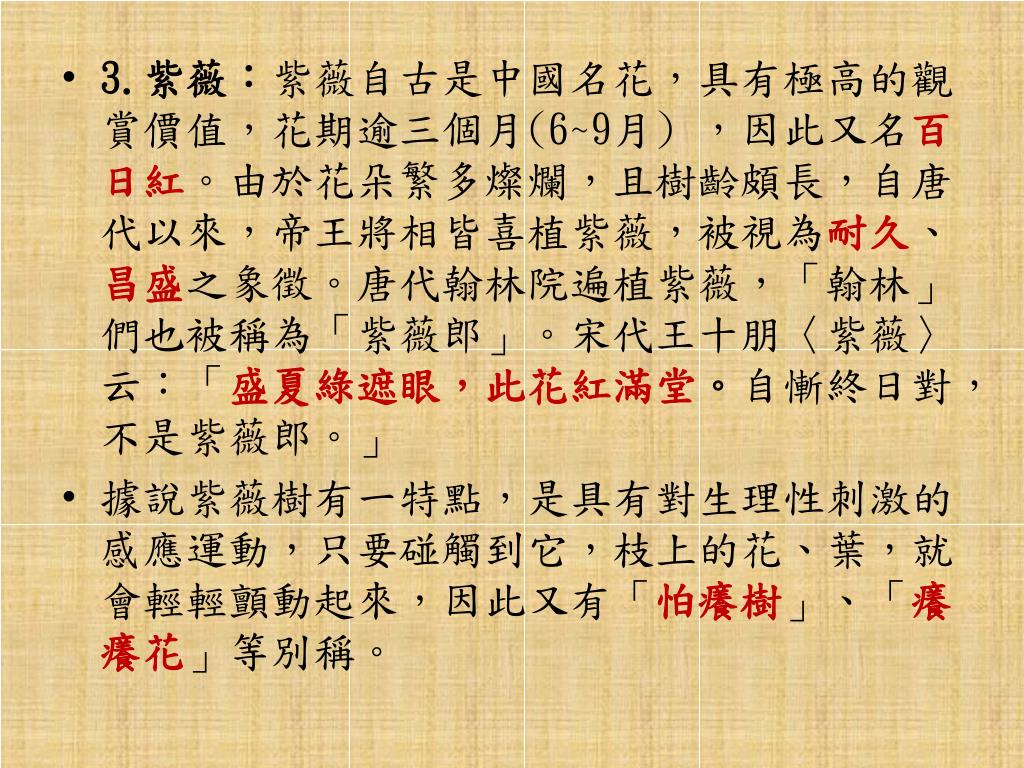 • 3.紫薇：紫薇自古是中國名花，具有極高的觀
賞價值，花期逾三個月(6~9月) ，因此又名百
日紅。由於花朵繁多燦爛，且樹齡頗長，自唐
代以來，帝王將相皆喜植紫薇，被視為耐久、
昌盛之象徵。唐代翰林院遍植紫薇，「翰林」
們也被稱為「紫薇郎」。宋代王十朋〈紫薇〉
云：「盛夏綠遮眼，此花紅滿堂。自慚終日對，
不是紫薇郎。」
• 據說紫薇樹有一特點，是具有對生理性刺激的
感應運動，只要碰觸到它，枝上的花、葉，就
會輕輕顫動起來，因此又有「怕癢樹」、「癢
癢花」等別稱。